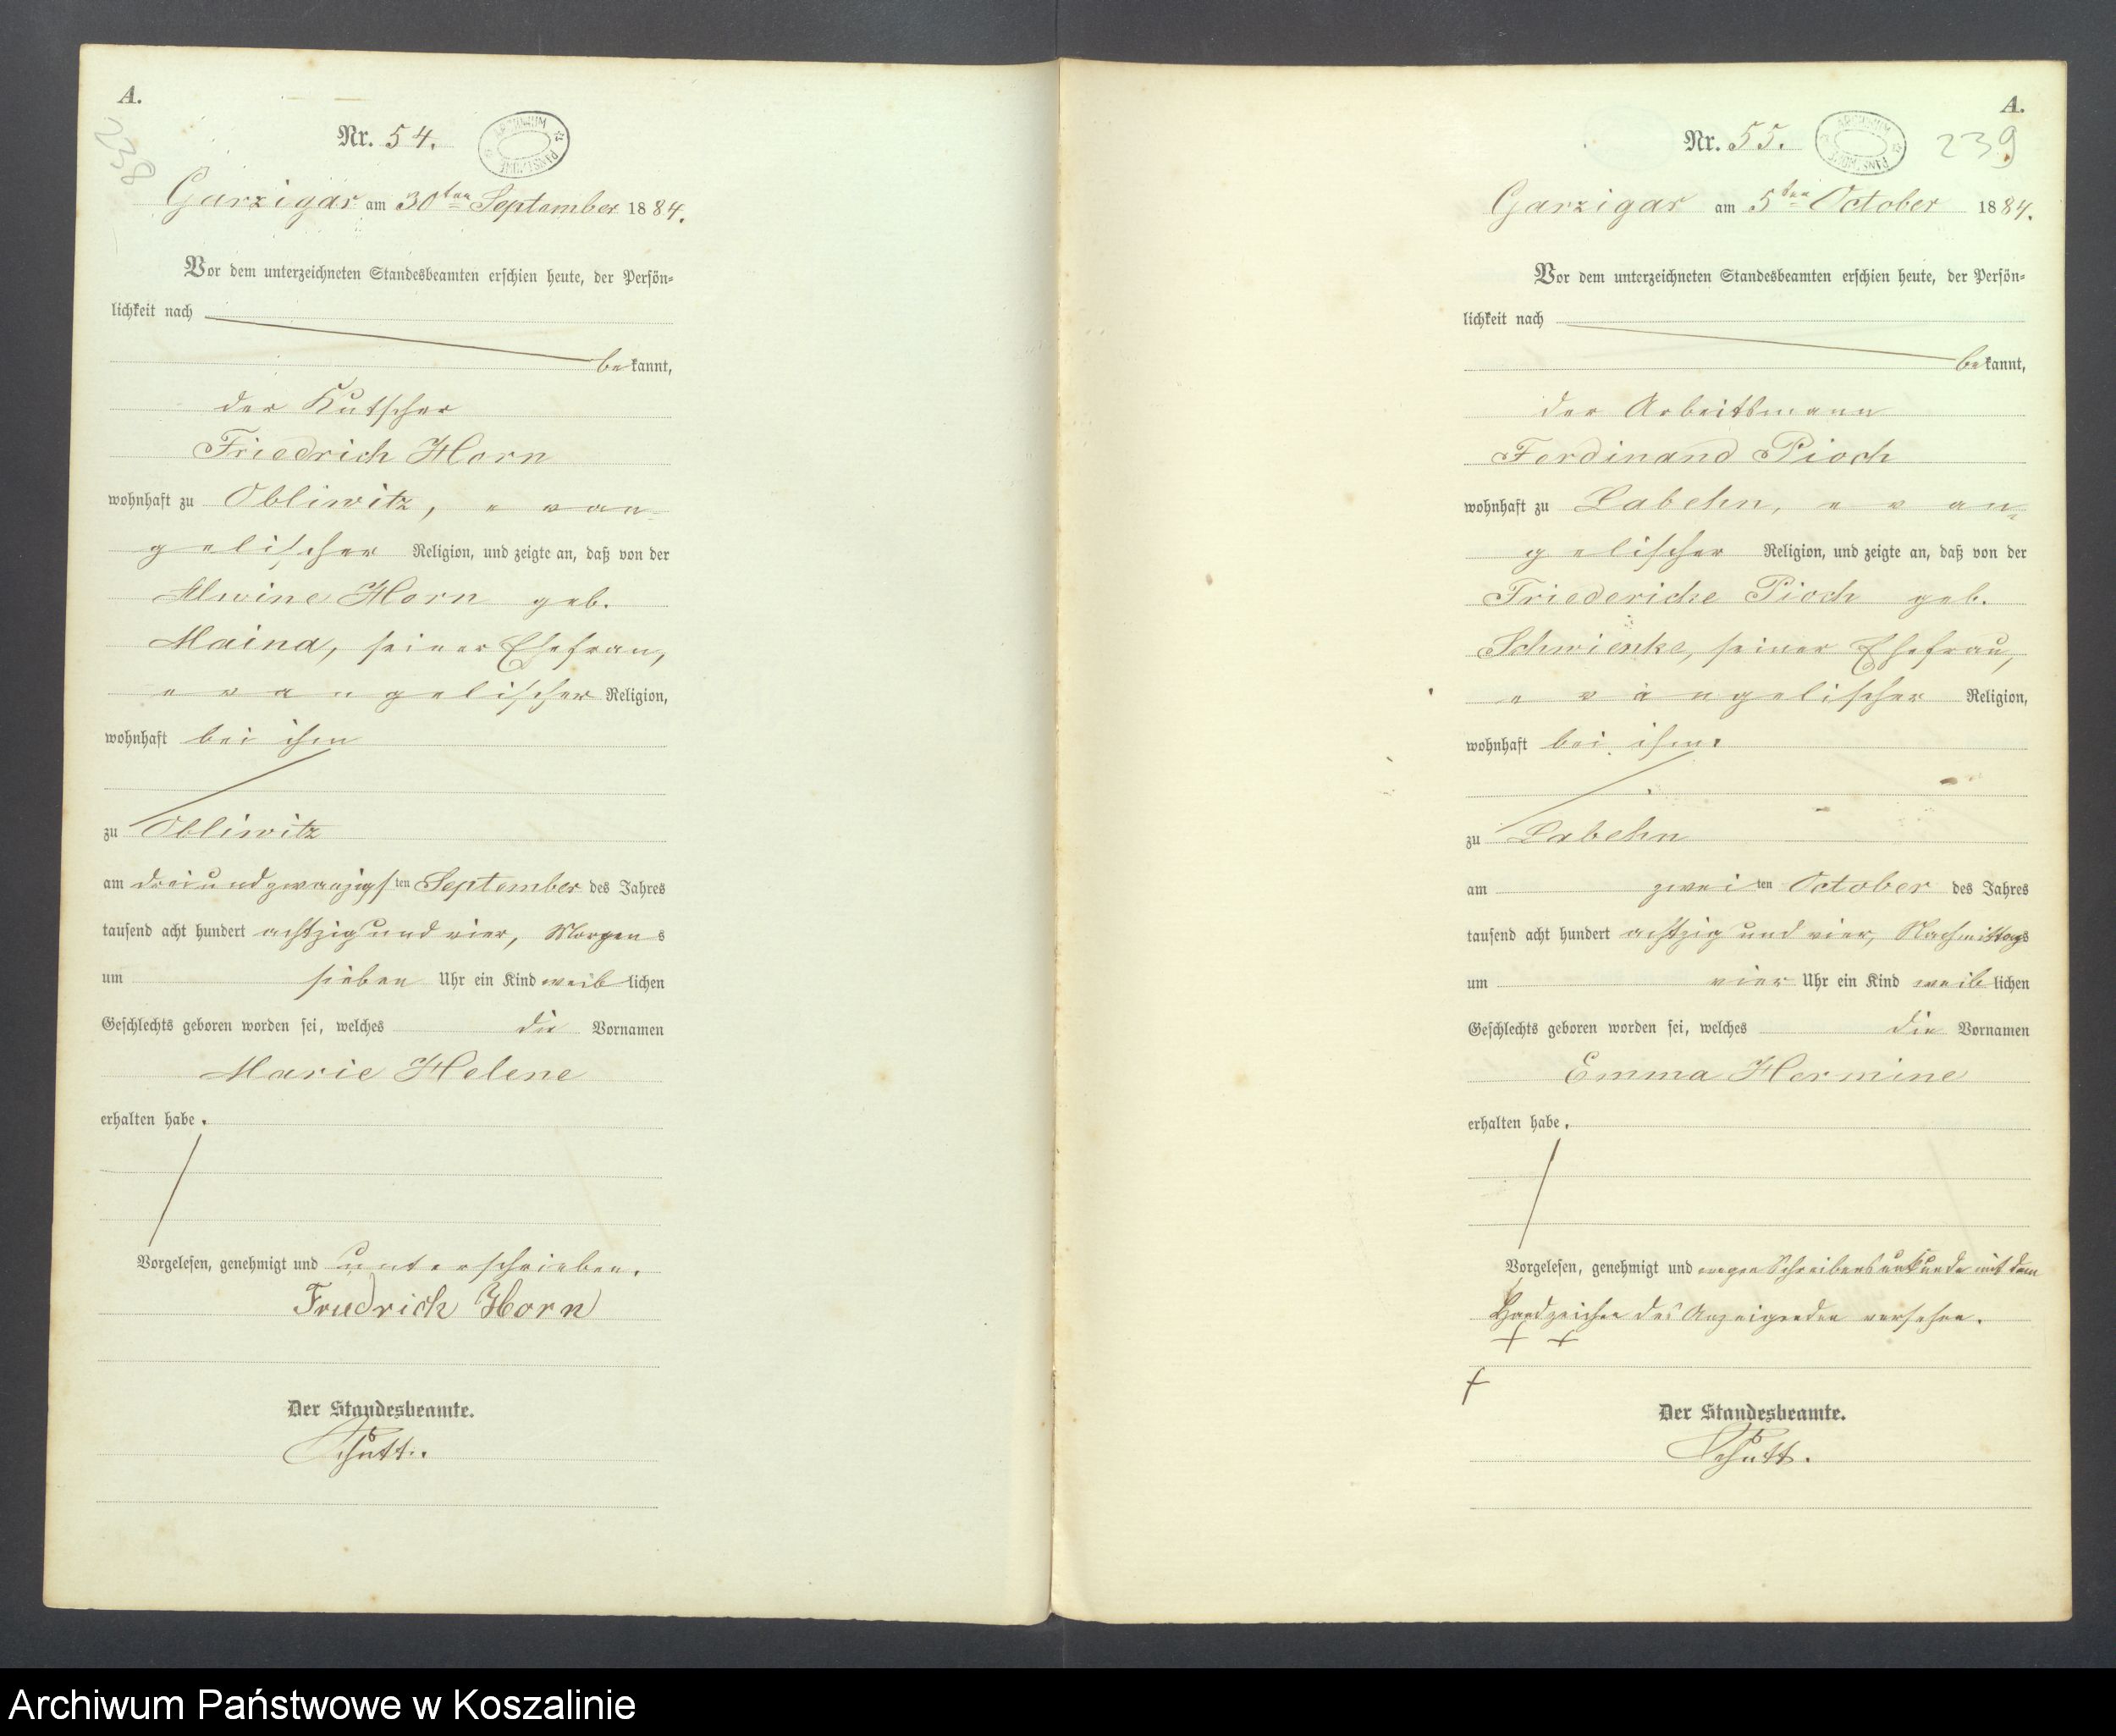 A.
238
Nr. 54.
ARCHIWUM PAŃSTWOWE
Garzigar am 30ten September 1884.
Vor dem unterzeichneten Standesbeamten erschien heute, der Persön-
lichkeit nach
bekannt,
der Kutscher
Friedrich Horn
wohnhaft zu Obliwitz, evan-
gelischer Religion, und zeigte an, daß von der
Alwine Horn geb.
Maina, seiner Ehefrau,
evangelischer Religion,
wohnhaft bei ihm
zu Obliwitz
am dreiundzwanzigsten September des Jahres
tausend acht hundert achtzig und vier, Morgens
um sieben Uhr ein Kind weiblichen
Geschlechts geboren worden sei, welches die Vornamen
Marie Helene
erhalten habe.
Vorgelesen, genehmigt und unterschrieben.
Friedrich Horn
Der Standesbeamte.
Schütt.
A.
Nr. 55.
ARCHIWUM PAŃSTWOWE
239
Garzigar am 5ten October 1884.
Vor dem unterzeichneten Standesbeamten erschien heute, der Persön-
lichkeit nach
bekannt,
der Arbeitsmann
Ferdinand Pioch
wohnhaft zu Labehn, evan-
gelischer Religion, und zeigte an, daß von der
Friedericke Pioch geb.
Schwienke, seiner Ehefrau,
evangelischer Religion,
wohnhaft bei ihm.
zu Labehn
am zweiten October des Jahres
tausend acht hundert achtzig und vier, Nachmittags
um vier Uhr ein Kind weiblichen
Geschlechts geboren worden sei, welches die Vornamen
Emma Hermine
erhalten habe.
Vorgelesen, genehmigt und wegen Schreibensunkunde mit dem
Handzeichen des Anzeigenden versehen.
+ +
+
Der Standesbeamte.
Schütt.
Archiwum Państwowe w Koszalinie